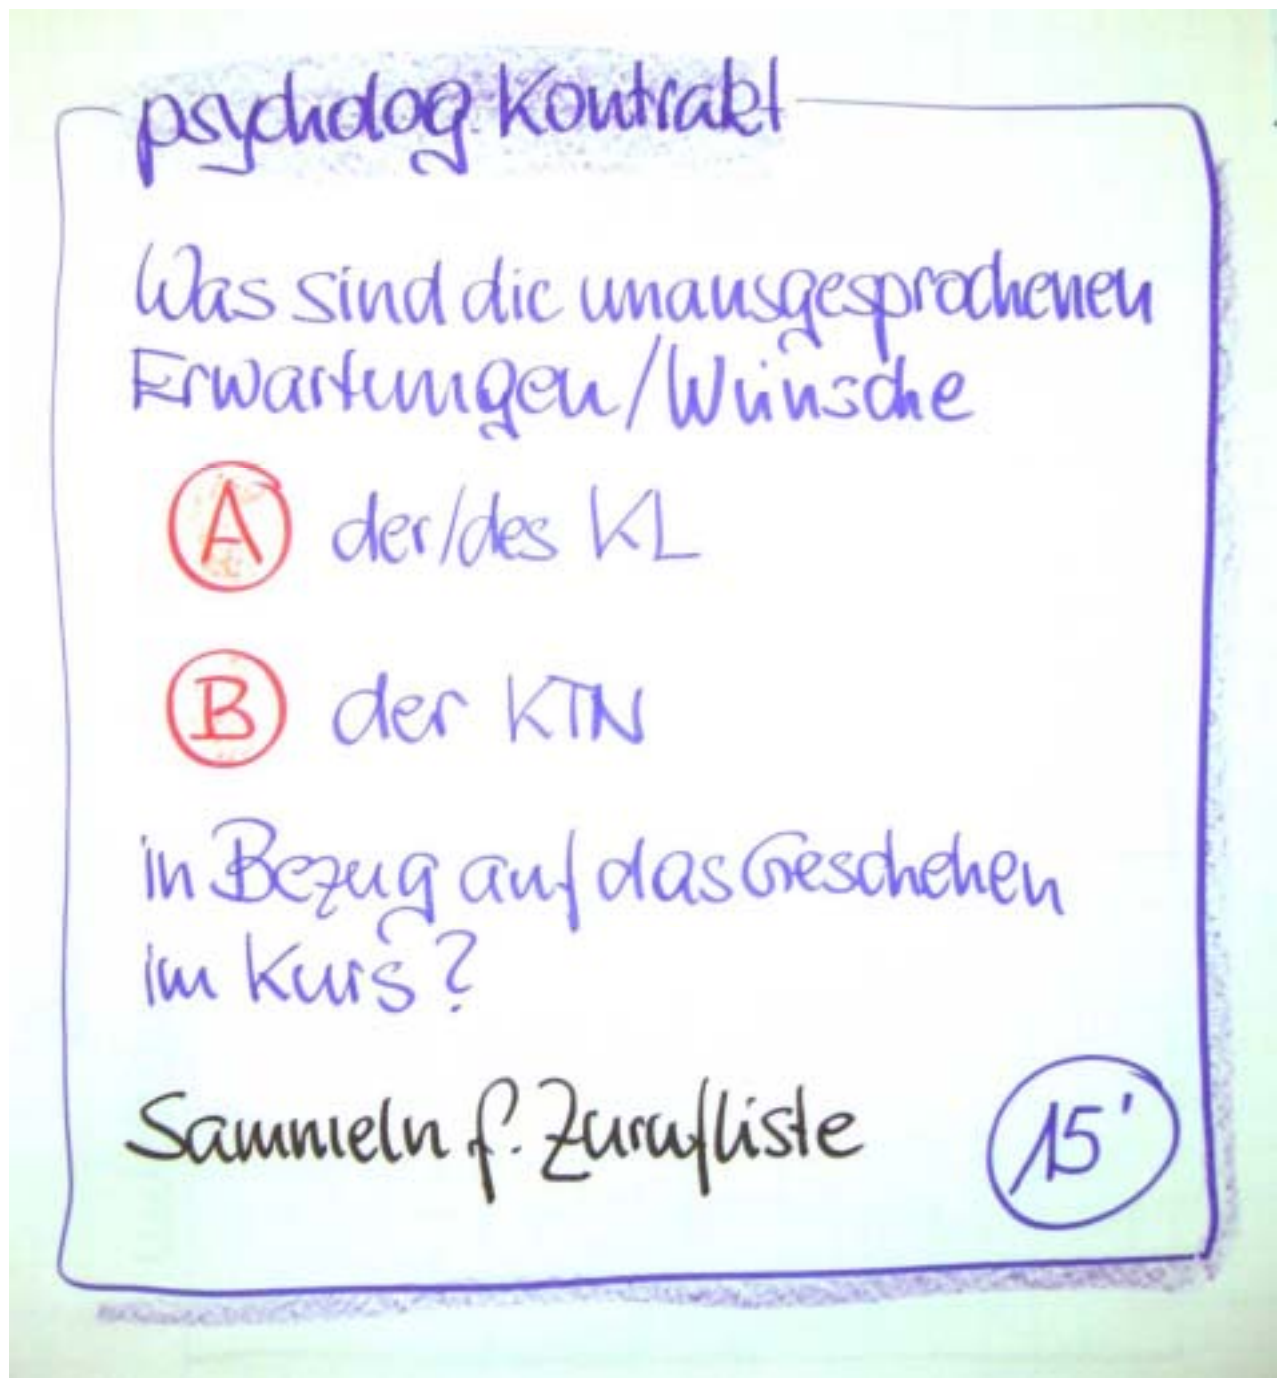 psycholog. Kontrakt
Was sind die unausgesprochenen
Erwartungen/Wünsche
A der/des KL
B der KTN
in Bezug auf das Geschehen
im Kurs?
Sammeln f. Zurufliste
15'